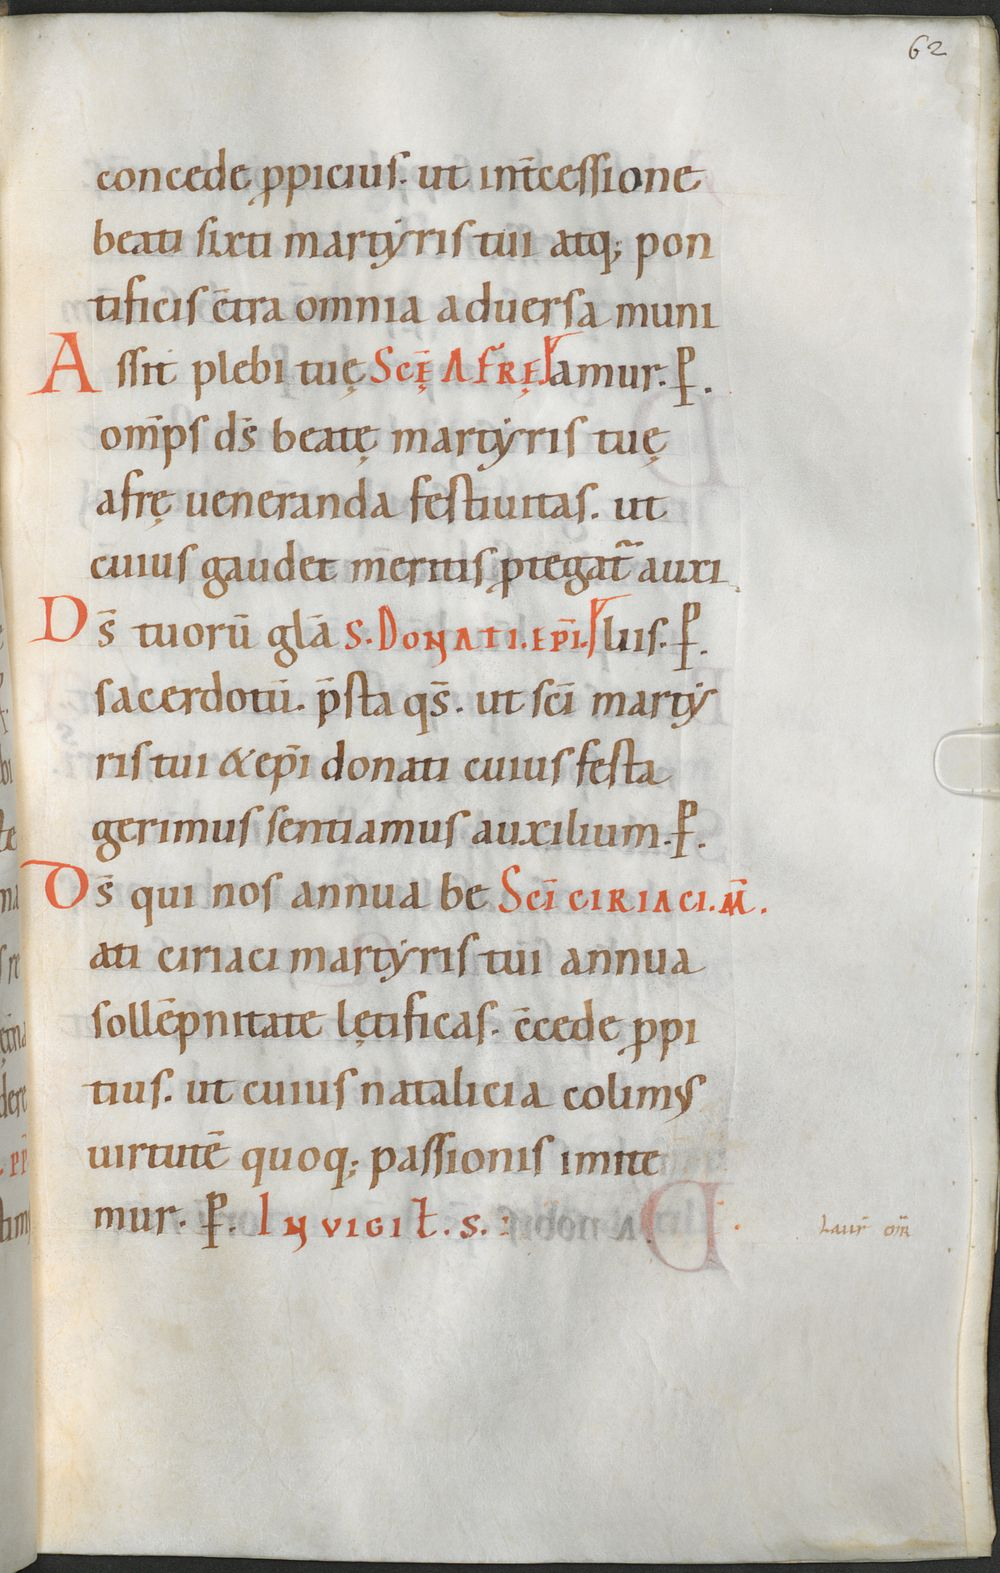 62
concede ꝓpicius. ut int̄cessione
beati sixti martẏris tui atq; pon
tificis c̄tra omnia aduersa muni
Assit plebi tuę Scę̄ Afrę amur. P̄.
om̄ps ds̄ beatę martẏris tuę
afrę ueneranda festiuitas. ut
cuius gaudet meritis ꝓtegat̄ auxi
Ds̄ tuorū glā S. Donati. epī. liis. P̄.
sacerdotū. p̄sta qs̄. ut scī martẏ
ris tui & epī donati cuius festa
gerimus sentiamus auxilium. P̄.
Ds̄ qui nos annua be Scī ciriaci. M̄.
ati ciriaci martẏris tui annua
sollēpnitate lętificas. c̄cede ꝓpi
tius. ut cuius natalicia colimus
uirtutē quoq; passionis imite
mur. P̄. In vigił. S.
Laur̄ om̄